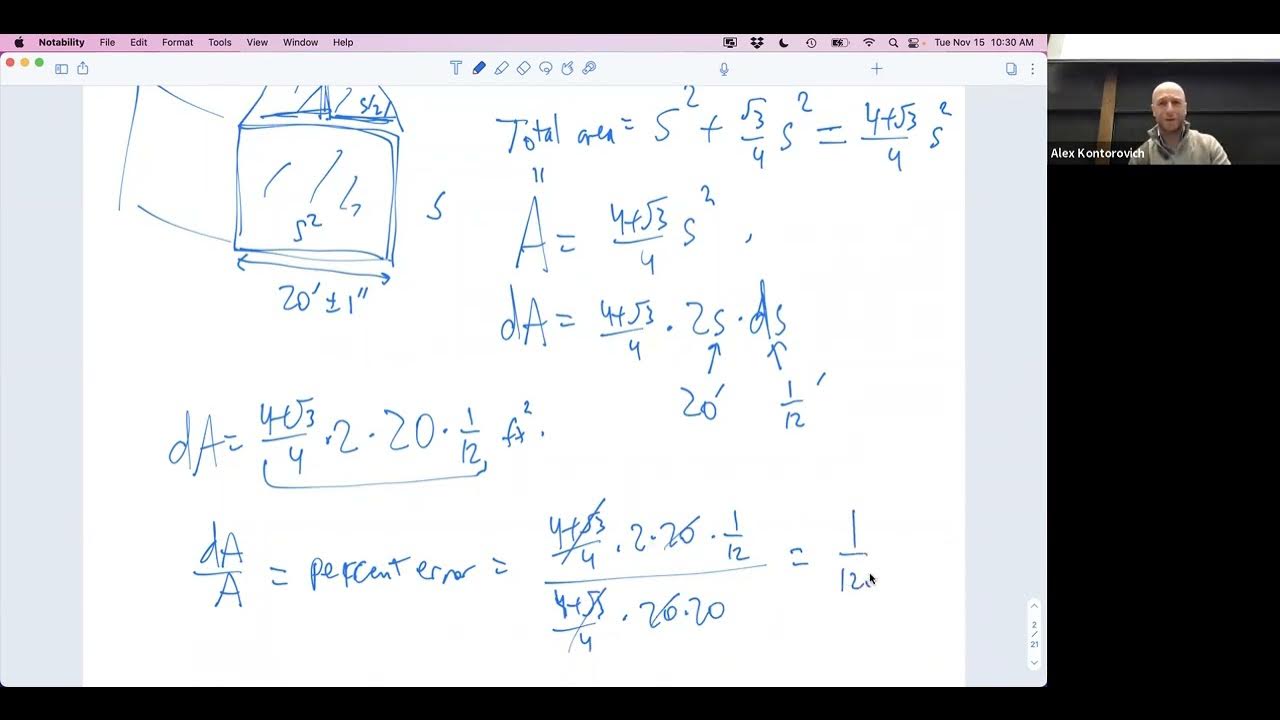 Notability File Edit Format Tools View Window Help Tue Nov 15 10:30 AM
Alex Kontorovich
s/2
Total area = S² + √3/4 S² = 4+√3/4 s²
"
s²
S
A = 4+√3/4 s²,
20' ± 1"
dA = 4+√3/4 · 2s · ds
20' 1/12'
dA = 4+√3/4 · 2 · 20 · 1/12 ft².
dA/A = percent error = 4+√3/4 · 2 · 20 · 1/12 / 4+√3/4 · 20 · 20 = 1/120
2
/
21